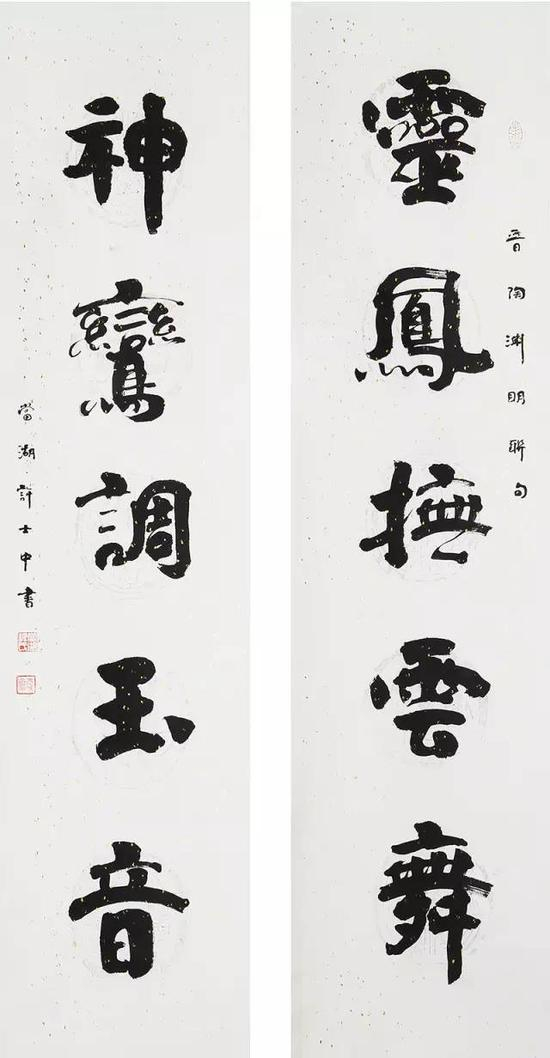 靈鳳撫雲舞
晉陶淵明聯句
神鸞調玉音
當湖許士中書